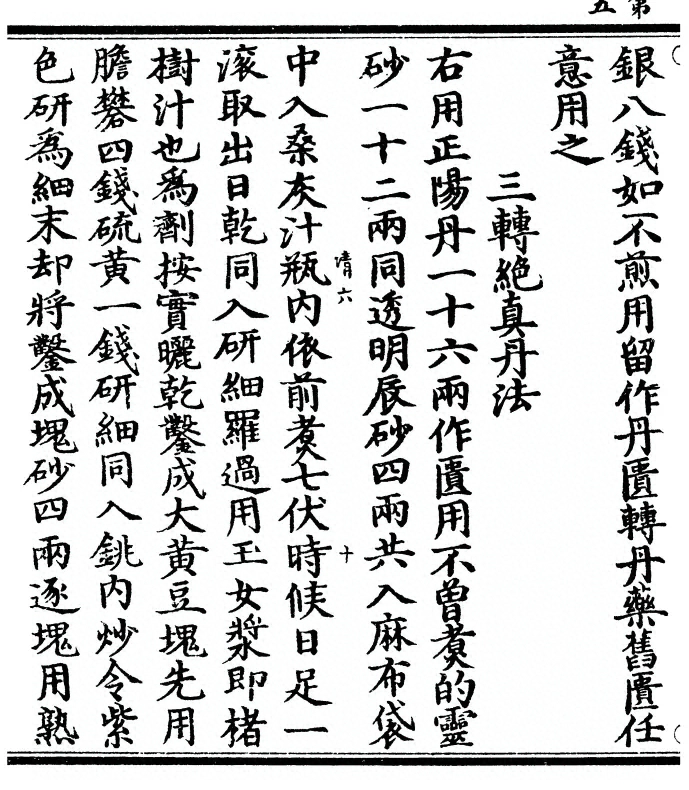 第五
銀八錢如不煎用留作丹匱轉丹藥舊匱任
意用之
三轉絶真丹法
右用正陽丹一十六兩作匱用不曾煑的靈
砂一十二兩同透明辰砂四兩共入麻布袋
中入桑灰汁瓶內依前煑七伏時候日足一
清六
十
滚取出日乾同入研細羅過用玉女漿即楮
樹汁也爲劑按實曬乾鑿成大黄豆塊先用
膽礬四錢硫黄一錢研細同入銚內炒令紫
色研爲細末却將鑿成塊砂四兩逐塊用熟